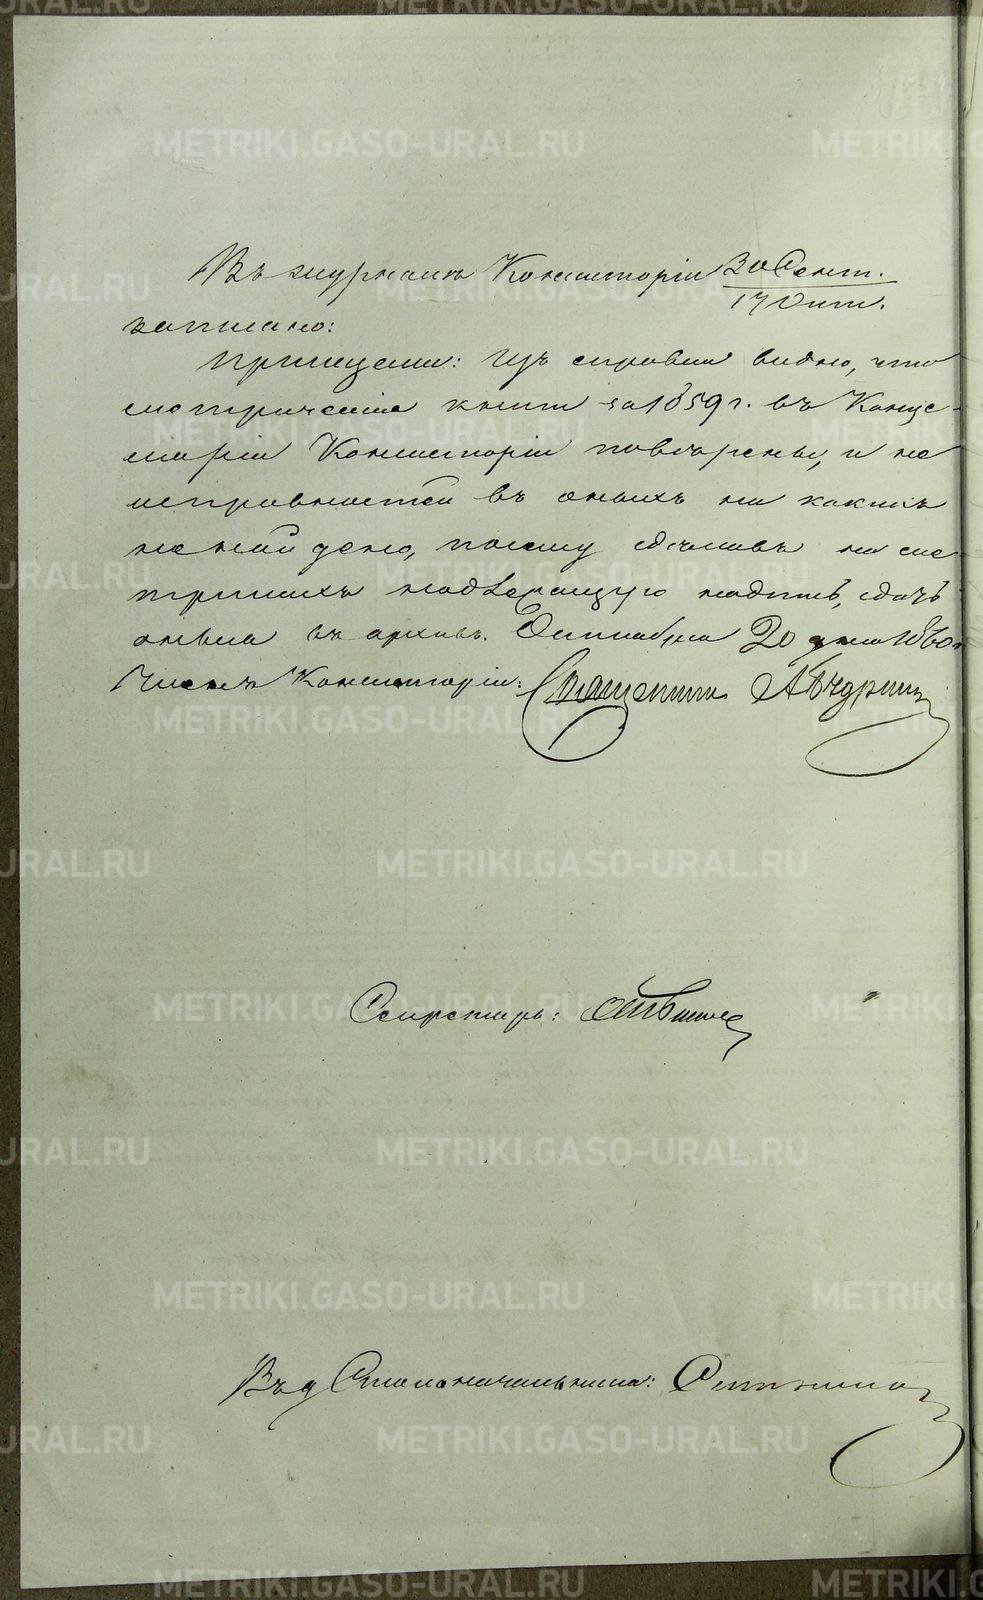 Въ журналѣ Консисторіи 30 Сент.
17 Окт.
записано:
Приказали: Изъ справки видно, что
метрическія книги за 1859 г. въ Канце-
ляріи Консисторіи повѣрены, и не
исправностей въ оныхъ ни какихъ
не найдено, посему сдѣлавъ на ме
трикахъ надлежащую надпись, сдать
оныя въ архивъ. Октября 20 дня 1860 г.
Членъ Консисторіи: Священникъ
Секретарь:
Въ д Столоначальника:
METRIKI.GASO-URAL.RU